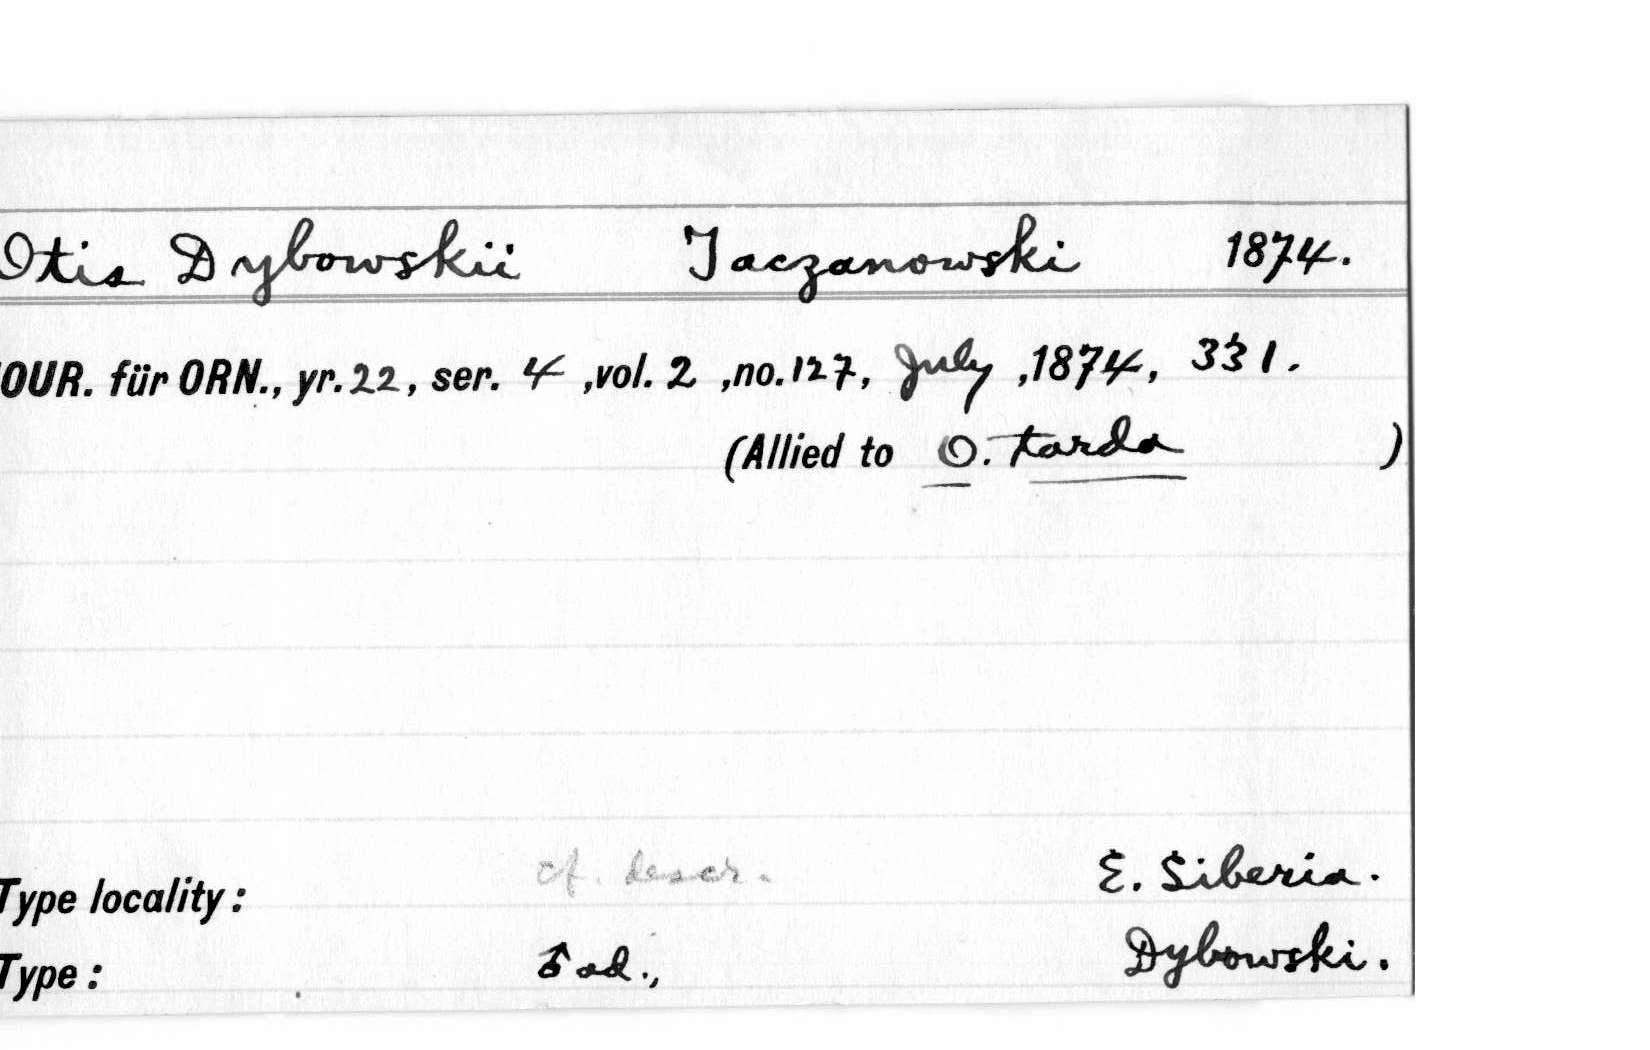 Otis Dybowskii Taczanowski 1874.
OUR. für ORN., yr. 22, ser. 4 ,vol. 2 ,no. 127, July ,1874, 331.
(Allied to O. tarda )
cf. descr.
Type locality: E. Siberia.
Type: ♂ ad., Dybowski.